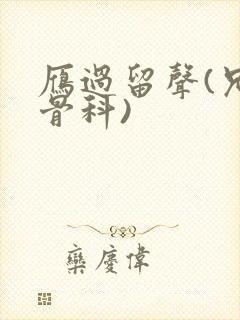 雁過留聲(兄
骨科)
欒慶偉